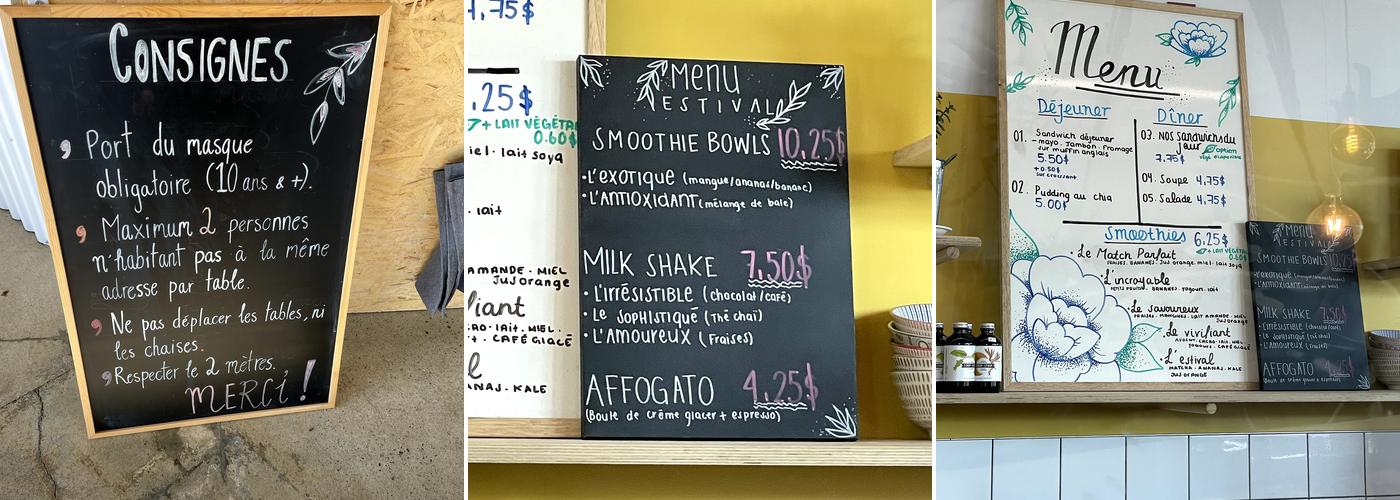 CONSIGNES
, Port du masque
obligatoire (10 ans & +).
, Maximum 2 personnes
n'habitant pas à la même
adresse par table.
, Ne pas déplacer les tables, ni
les chaises.
, Respecter le 2 mètres.
MERCI !
4,75$
.25$
+ LAIT VÉGÉTA
0.60$
iel. lait soya
. lait
AMANDE . MIEL
Jus Orange
liant
. lait . MIEL .
. CAFÉ GLACÉ
ANAS . KALE
Menu
ESTIVAL
SMOOTHIE BOWLS 10.25$
• L'EXOTIQUE (mangue/ananas/banane)
• L'ANTIOXIDANT (mélange de baie)
MILK SHAKE 7,50$
• L'IRRÉSISTIBLE (chocolat/café)
• LE SOPHISTIQUÉ (Thé chaï)
• L'AMOUREUX (Fraises)
AFFOGATO 4.25$
(Boule de crème glacer + espresso)
Menu
Déjeuner
01. Sandwich déjeuner
- mayo. Jambon. Fromage
sur muffin anglais
5.50$
+0.50$
sur croissant
02. Pudding au chia
5.00$
Dîner
03. NOS sandwichs du
jour
option
végé disponible
7.75$
04. Soupe 4,75$
05. Salade 4,75$
Smoothies 6,25$
+ LAIT VÉGÉTA
0.60$
• Le Match Parfait
FRAISES. BANANES. Jus orange. miel. lait soya
• L'incroyable
PETITS FRUITS. BANANES. Yogourt. lait
• Le savoureux
FRAISES. MANGUES. LAIT AMANDE. MIEL
Jus Orange
• Le vivifiant
AVOCAT. CACAO. lait. MIEL.
YOGOURT. CAFÉ GLACÉ
• L'estival
MATCHA. ANANAS. KALE
JUS ORANGE
Menu
ESTIVAL
SMOOTHIE BOWLS 10.25$
• L'EXOTIQUE (mangue/ananas/banane)
• L'ANTIOXIDANT (mélange de baie)
MILK SHAKE 7,50$
• L'IRRÉSISTIBLE (chocolat/café)
• LE SOPHISTIQUÉ (Thé chaï)
• L'AMOUREUX (Fraises)
AFFOGATO 4.25$
(Boule de crème glacer + espresso)